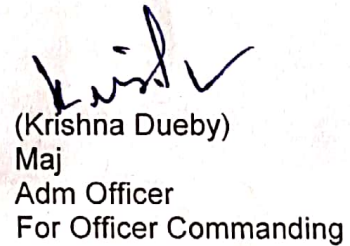 (Krishna Dueby)
Maj
Adm Officer
For Officer Commanding